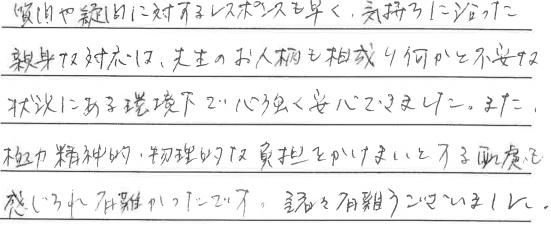 質問や疑問に対するレスポンスも早く、気持ちに沿った
親身な対応は、先生のお人柄も相成り何かと不安な
状況にある環境下で心強く安心できました。また、
極力精神的・物理的な負担をかけまいとする配慮も
感じられ有難かったです。諸々有難うございました。